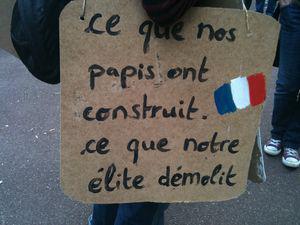 .ce que nos
papis ont
construit.
.ce que notre
élite démolit